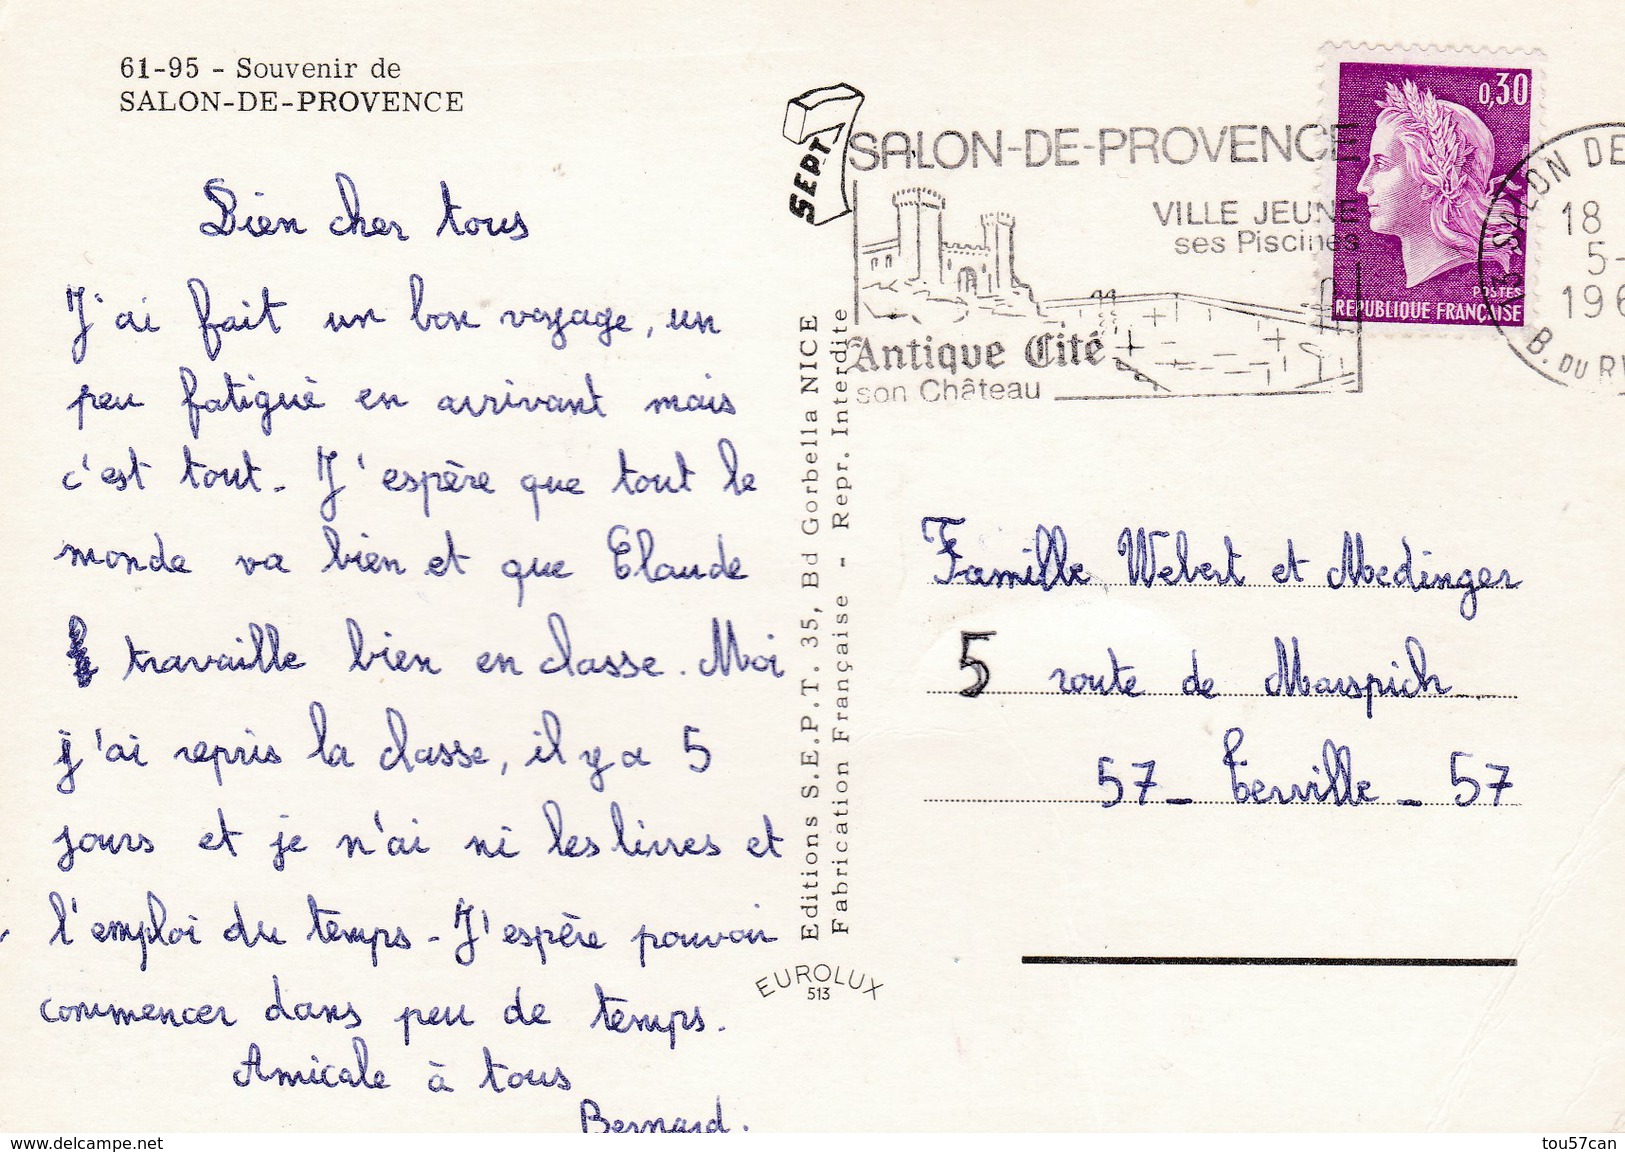 61-95 - Souvenir de
SALON-DE-PROVENCE
Bien cher tous
J'ai fait un bon voyage, un
peu fatigué en arrivant mais
c'est tout. J'espère que tout le
monde va bien et que Claude
travaille bien en classe. Moi
j'ai repris la classe, il y a 5
jours et je n'ai ni les livres et
l'emploi du temps - J'espère pouvoir
commencer dans peu de temps.
Amicale à tous
Bernard.
Editions S.E.P.T. 35, Bd Gorbella NICE
Fabrication Française - Repr. Interdite
EUROLUX
513
SEPT
SALON-DE-PROVENCE
VILLE JEUNE
ses Piscines
Antique Cité
son Château
0,30
POSTES
REPUBLIQUE FRANÇAISE
13 SALON DE
18
5-
196
B. DU R
Famille Webert et Medinger
5 route de Marspich
57 - Terville - 57
www.delcampe.net
tou57can